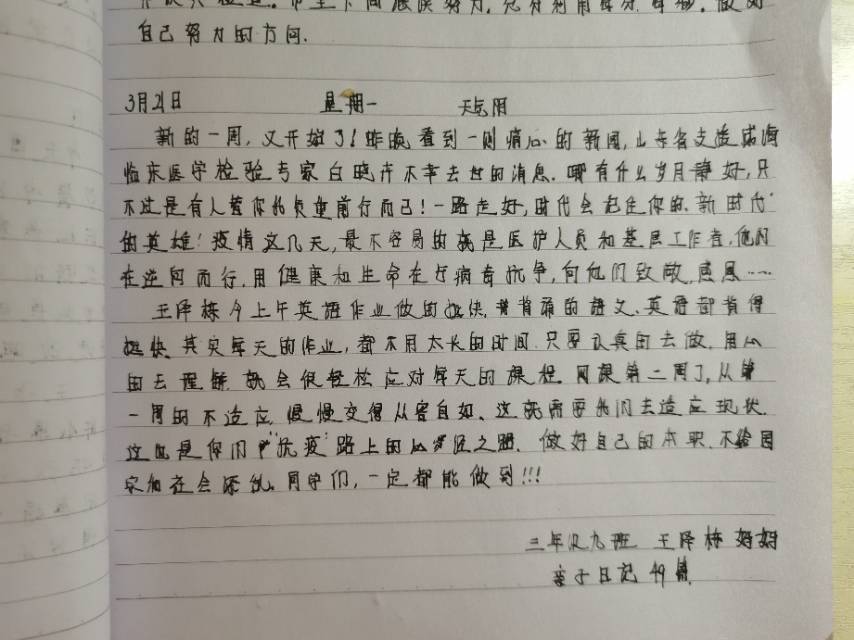 自己努力的方向.
3月21日 星期一 天气阴
新的一周，又开始了！昨晚看到一则痛心的新闻，山东省支援威海
临床医学检验专家白晓卉不幸去世的消息. 哪有什么岁月静好，只
不过是有人替你我负重前行而已！一路走好，时代会记住你的. 新时代
的英雄！疫情这几天，最不容易的就是医护人员和基层工作者，他们
在逆向而行. 用健康和生命在与病毒抗争，向他们致敬，感恩……
王泽栋今上午英语作业做的挺快. 背诵的语文、英语都背得
挺快. 其实每天的作业，都不用太长的时间. 只要认真的去做. 用心
的去理解 就会很轻松应对每天的课程. 网课第二周了，从第
一周的不适应. 慢慢变得从容自如、这就需要我们去适应现状.
这也是你们"抗疫"路上的必经之路. 做好自己的本职、不给国
家和社会添乱. 同学们，一定都能做到!!!
三年级九班 王泽栋妈妈
亲子日记 49篇.